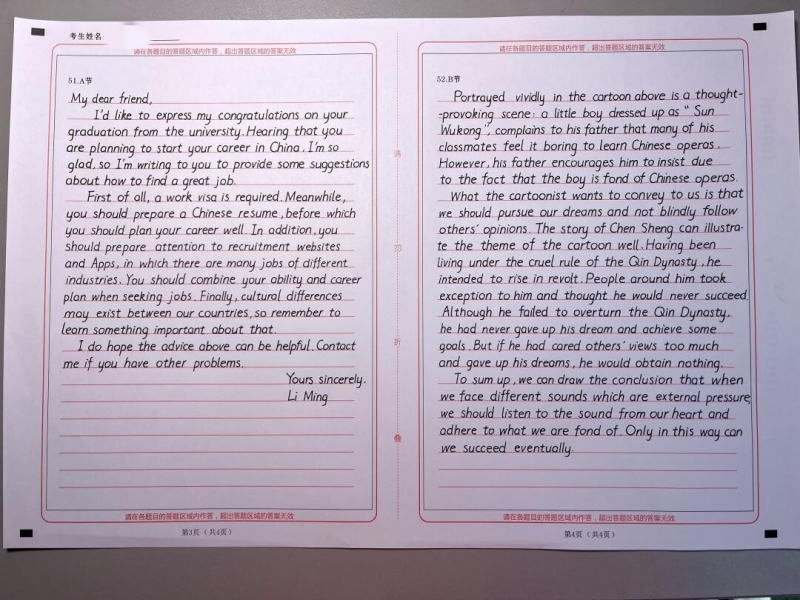 考生姓名
请在各题目的答题区域内作答，超出答题区域的答案无效
51.A节
My dear friend,
I'd like to express my congratulations on your
graduation from the university. Hearing that you
are planning to start your career in China. I'm so
glad, so I'm writing to you to provide some suggestions
about how to find a great job.
First of all, a work visa is required. Meanwhile,
you should prepare a Chinese resume, before which
you should plan your career well. In addition, you
should prepare attention to recruitment websites
and Apps, in which there are many jobs of different
industries. You should combine your ability and career
plan when seeking jobs. Finally, cultural differences
may exist between our countries, so remember to
learn something important about that.
I do hope the advice above can be helpful. Contact
me if you have other problems.
Yours sincerely.
Li Ming
请在各题目的答题区域内作答，超出答题区域的答案无效
第3页（共4页）
请在各题目的答题区域内作答，超出答题区域的答案无效
52.B节
Portrayed vividly in the cartoon above is a thought-
-provoking scene: a little boy dressed up as "Sun
Wukong", complains to his father that many of his
classmates feel it boring to learn Chinese operas.
However, his father encourages him to insist due
to the fact that the boy is fond of Chinese operas.
What the cartoonist wants to convey to us is that
we should pursue our dreams and not blindly follow
others' opinions. The story of Chen Sheng can illustra-
te the theme of the cartoon well. Having been
living under the cruel rule of the Qin Dynasty, he
intended to rise in revolt. People around him took
exception to him and thought he would never succeed.
Although he failed to overturn the Qin Dynasty,
he had never gave up his dream and achieve some
goals. But if he had cared others' views too much
and gave up his dreams, he would obtain nothing.
To sum up, we can draw the conclusion that when
we face different sounds which are external pressure,
we should listen to the sound from our heart and
adhere to what we are fond of. Only in this way can
we succeed eventually.
请在各题目的答题区域内作答，超出答题区域的答案无效
第4页（共4页）
折
叠